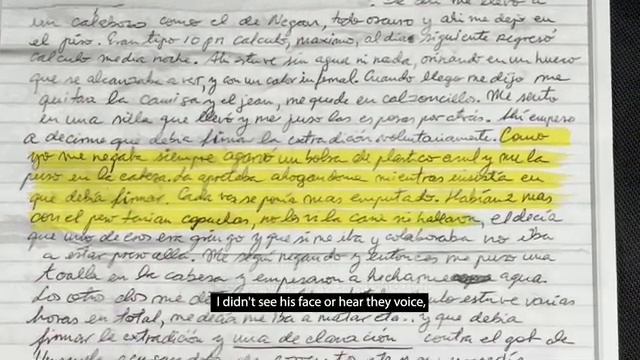 me llevó a
un calabozo como el de Negan, todo oscuro y ahi me dejo en
el piso. Eran tipo 10 pm calculo, maximo, al dia siguiente regresó
calculo media noche. Ahi estuve sin agua ni nada, orinando en un hueco
que se alcanzaba a ver, y con un calor infernal. Cuando llego me dijo me
quitara la camisa y el jean, me quede en calzoncillos. Me sento
en una silla que llevó y me puso las esposas por atrás. Ahi empeso
a decirme que debia firmar la extradición voluntariamente. Como
yo me negaba siempre agarro un bolsa de plastico azul y me la
puso en la cabesa. La apretaba ahogandome mientras insistia en
que debia firmar. Cada vez se ponia mas emputado. Habian 2 mas
con el pero tenian capuchas, no les vi la cara ni hablaron, el decia
que uno de esos era gringo y que si me iba y colaboraba no iba
a estar preso alla. Me segui negando y entonces me puso una
toalla en la cabesa y empesaron a hecharme agua.
Los otro dos me estuve varias
horas en total, me decia me iba a matar y que debia
firmar la extradición y una declaración contra el gob de
I didn't see his face or hear they voice,